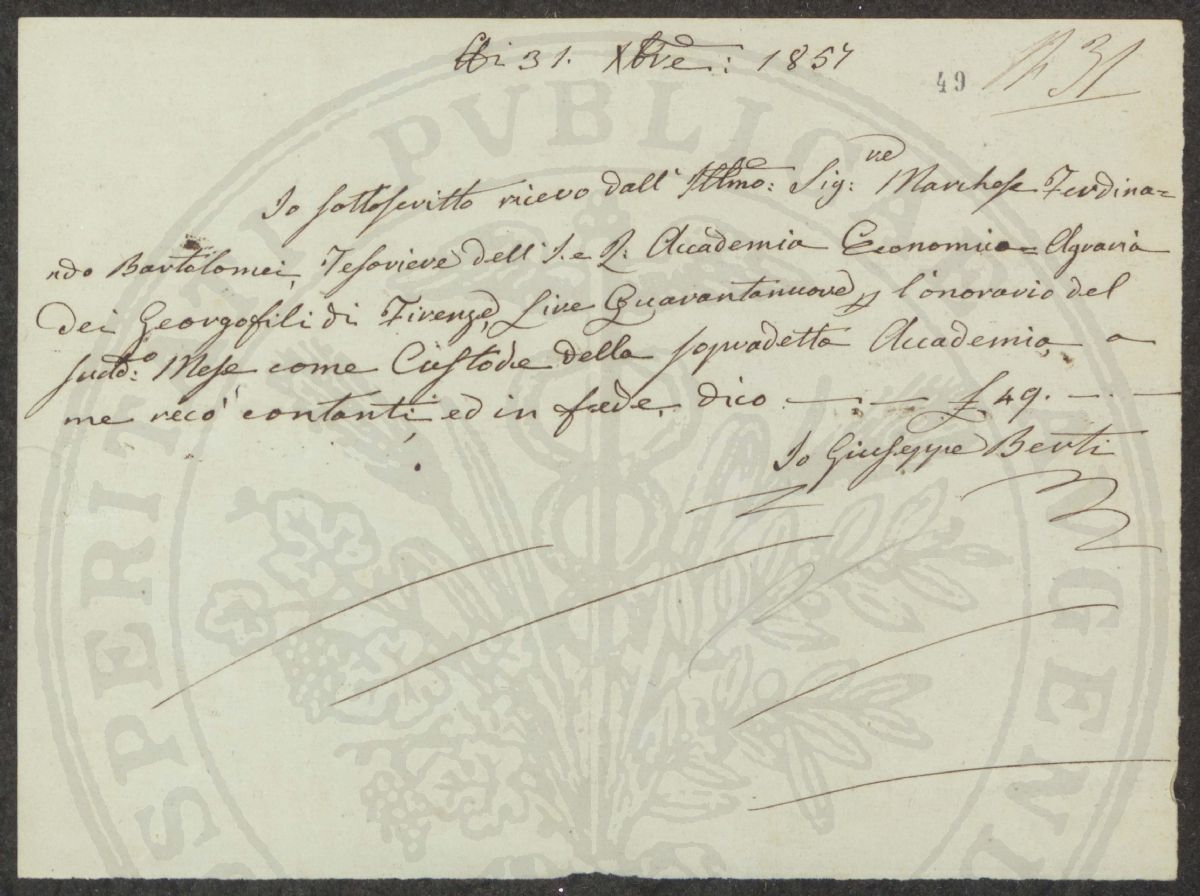 Adi 31. Xbre: 1857
49 N 31
Io sottoscritto ricevo dall' Illmo: Sig:re Marchese Ferdina=
ndo Bartolomei, Tesoriere dell' I. e R. Accademia Economico=Agraria
dei Georgofili di Firenze, Lire Quarantanuove p l'onorario del
sudd:o Mese come Custode della sopradetta Accademia, a
me recò contanti ed in fede, dico — — £ 49. — . —
Io Giuseppe Berti
PROSPERITATI PVBLICAE AVGENDAE